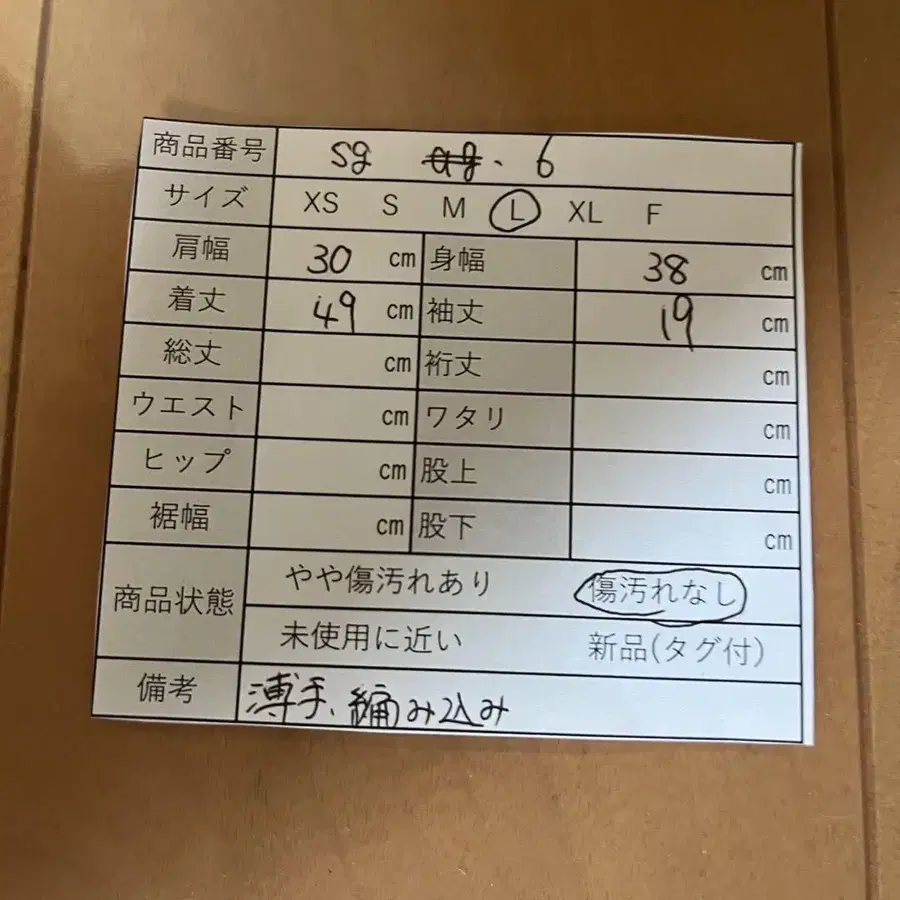 商品番号 sg ag. 6
サイズ XS S M L XL F
肩幅 30 cm 身幅 38 cm
着丈 49 cm 袖丈 19 cm
総丈 cm 裄丈 cm
ウエスト cm ワタリ cm
ヒップ cm 股上 cm
裾幅 cm 股下 cm
商品状態 やや傷汚れあり 傷汚れなし
未使用に近い 新品(タグ付)
備考 薄手、編み込み